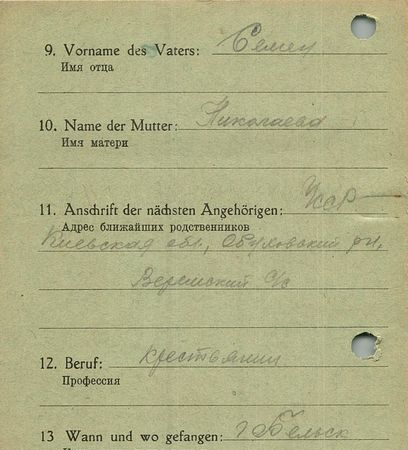 9. Vorname des Vaters: Семен
Имя отца
10. Name der Mutter: Николаева
Имя матери
11. Anschrift der nächsten Angehörigen: УССР
Адрес ближайших родственников
Киевская обл., Обуховский р-н,
Веремский с/с
12. Beruf: крестьянин
Профессия
13 Wann und wo gefangen: г Бельск